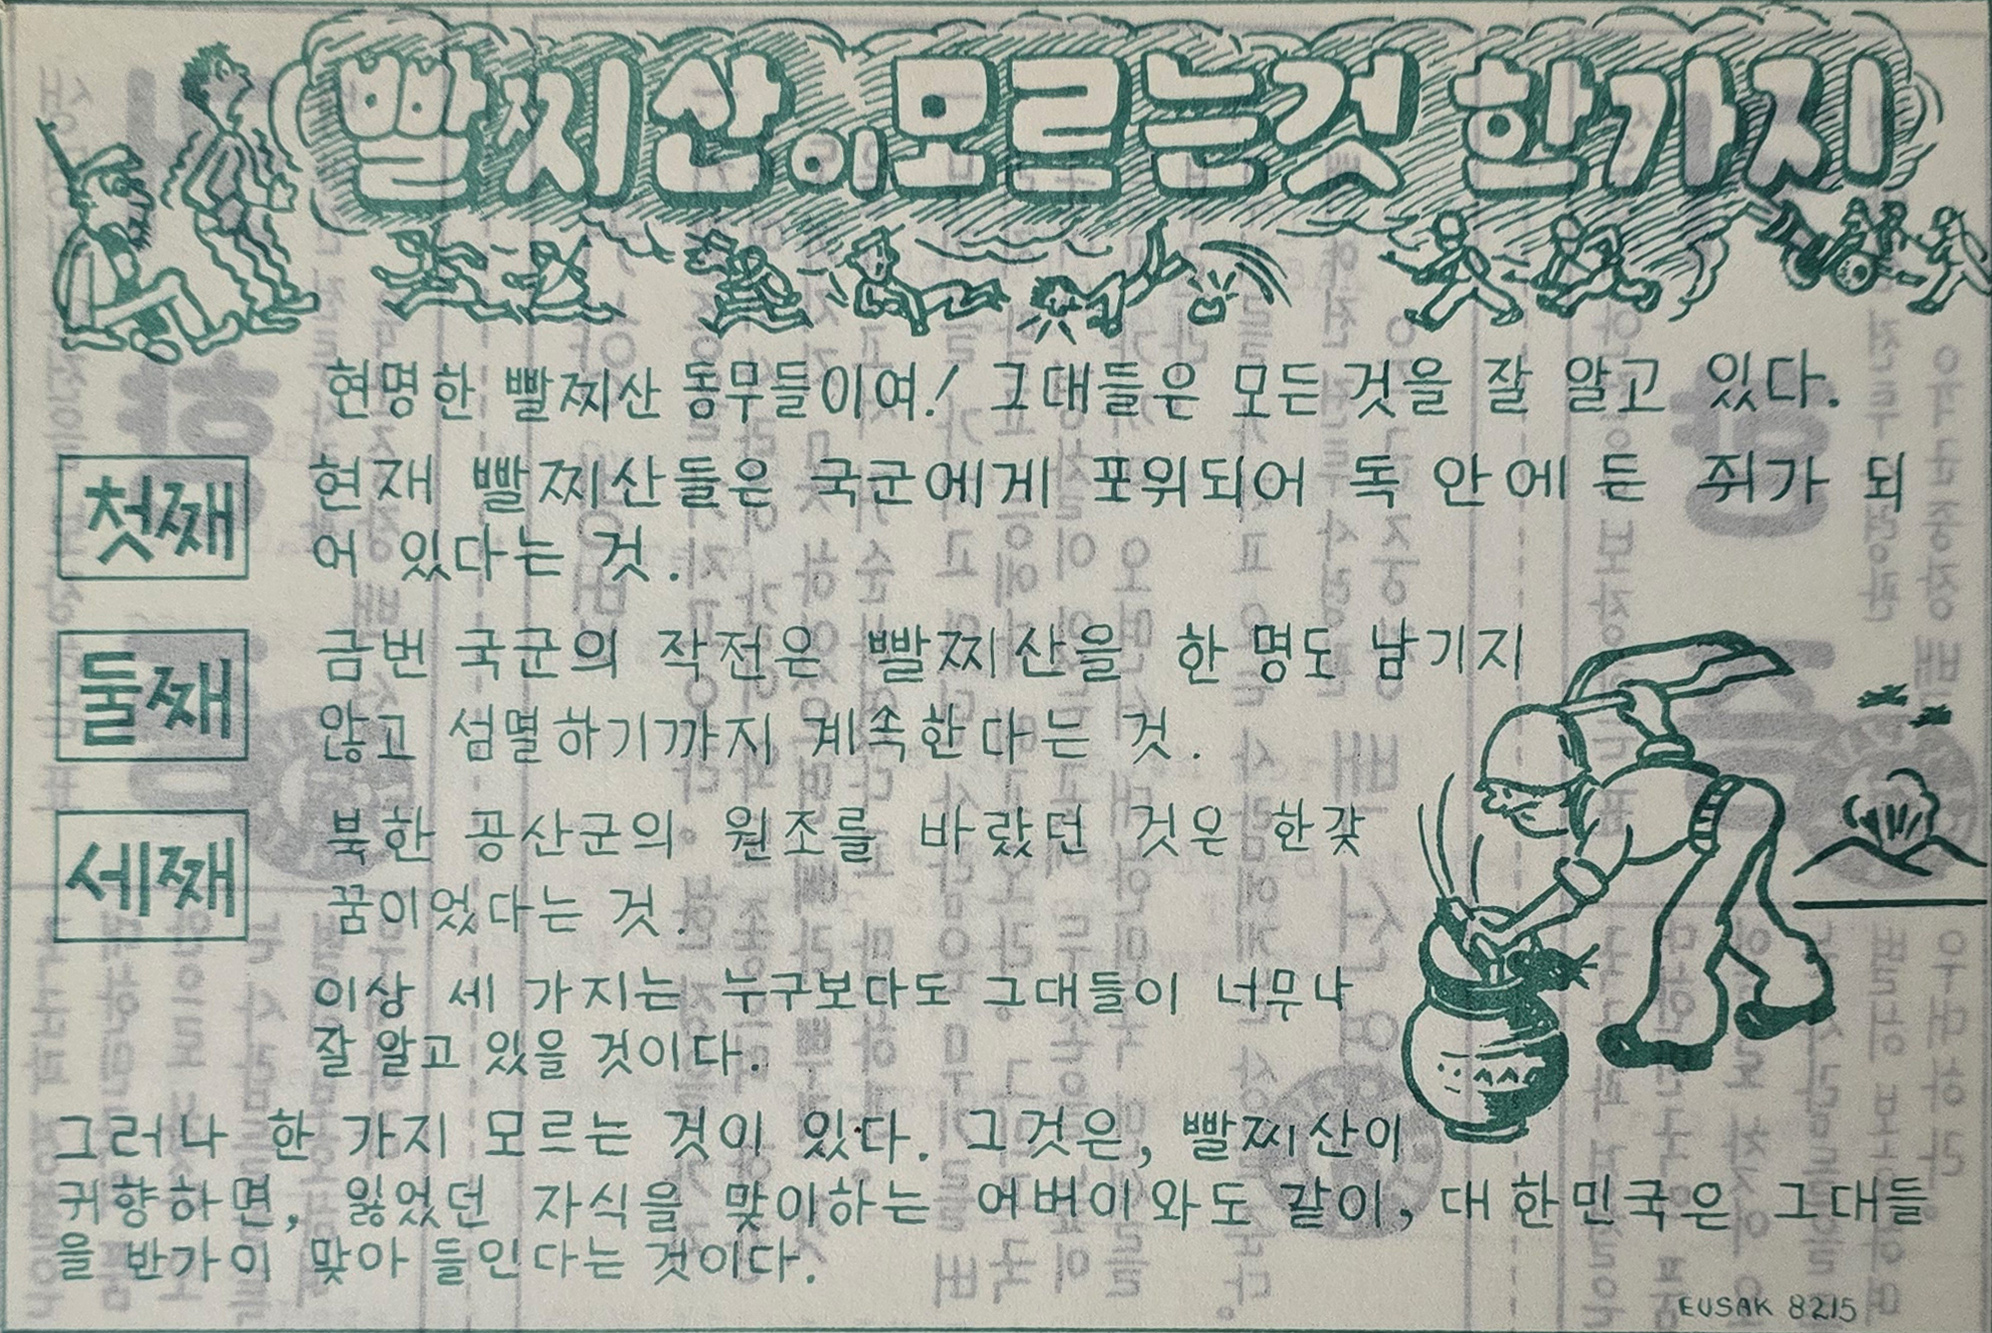 빨찌산이 모르는것 한가지
현명한 빨찌산 동무들이여! 그대들은 모든 것을 잘 알고 있다.
첫째
현재 빨찌산들은 국군에게 포위되어 독 안에 든 쥐가 되
어 있다는 것.
둘째
금번 국군의 작전은 빨찌산을 한 명도 남기지
않고 섬멸하기까지 계속한다는 것.
세째
북한 공산군의 원조를 바랐던 것은 한갖
꿈이었다는 것.
이상 세 가지는 누구보다도 그대들이 너무나
잘 알고 있을 것이다.
그러나 한 가지 모르는 것이 있다. 그것은, 빨찌산이
귀향하면, 잃었던 자식을 맞이하는 어버이와도 같이, 대한민국은 그대들
을 반가이 맞아 들인다는 것이다.
EUSAK 8215